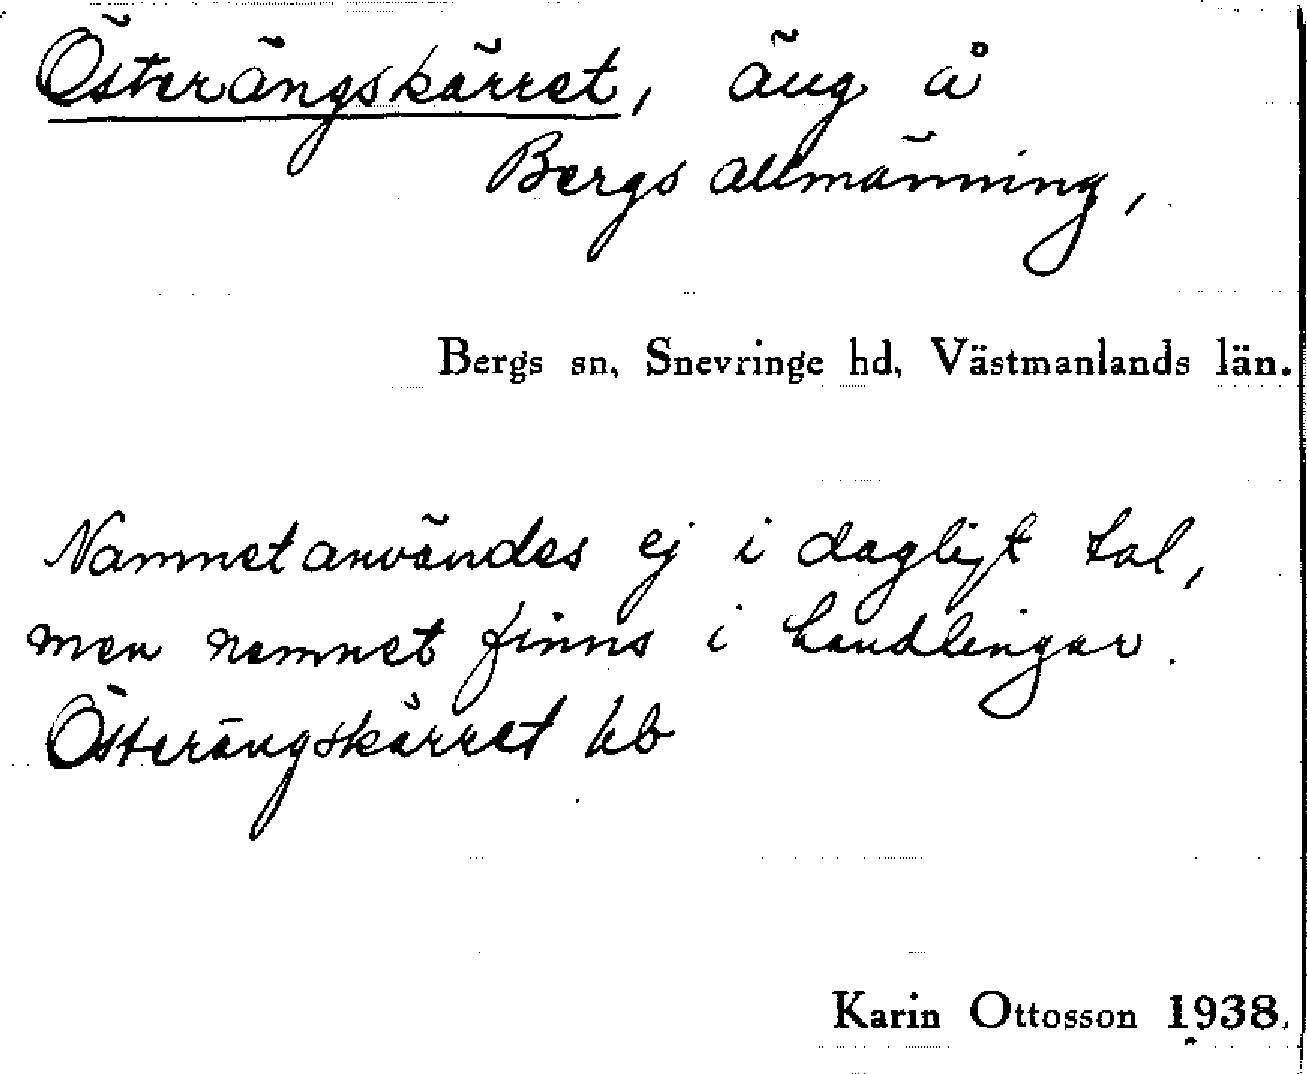 Österängskärret, äng å
Bergs allmänning,
Bergs sn, Snevringe hd, Västmanlands län.
Namnet användes ej i dagligt tal,
men namnet finns i handlingar.
Österängskärret hb
Karin Ottosson 1938.